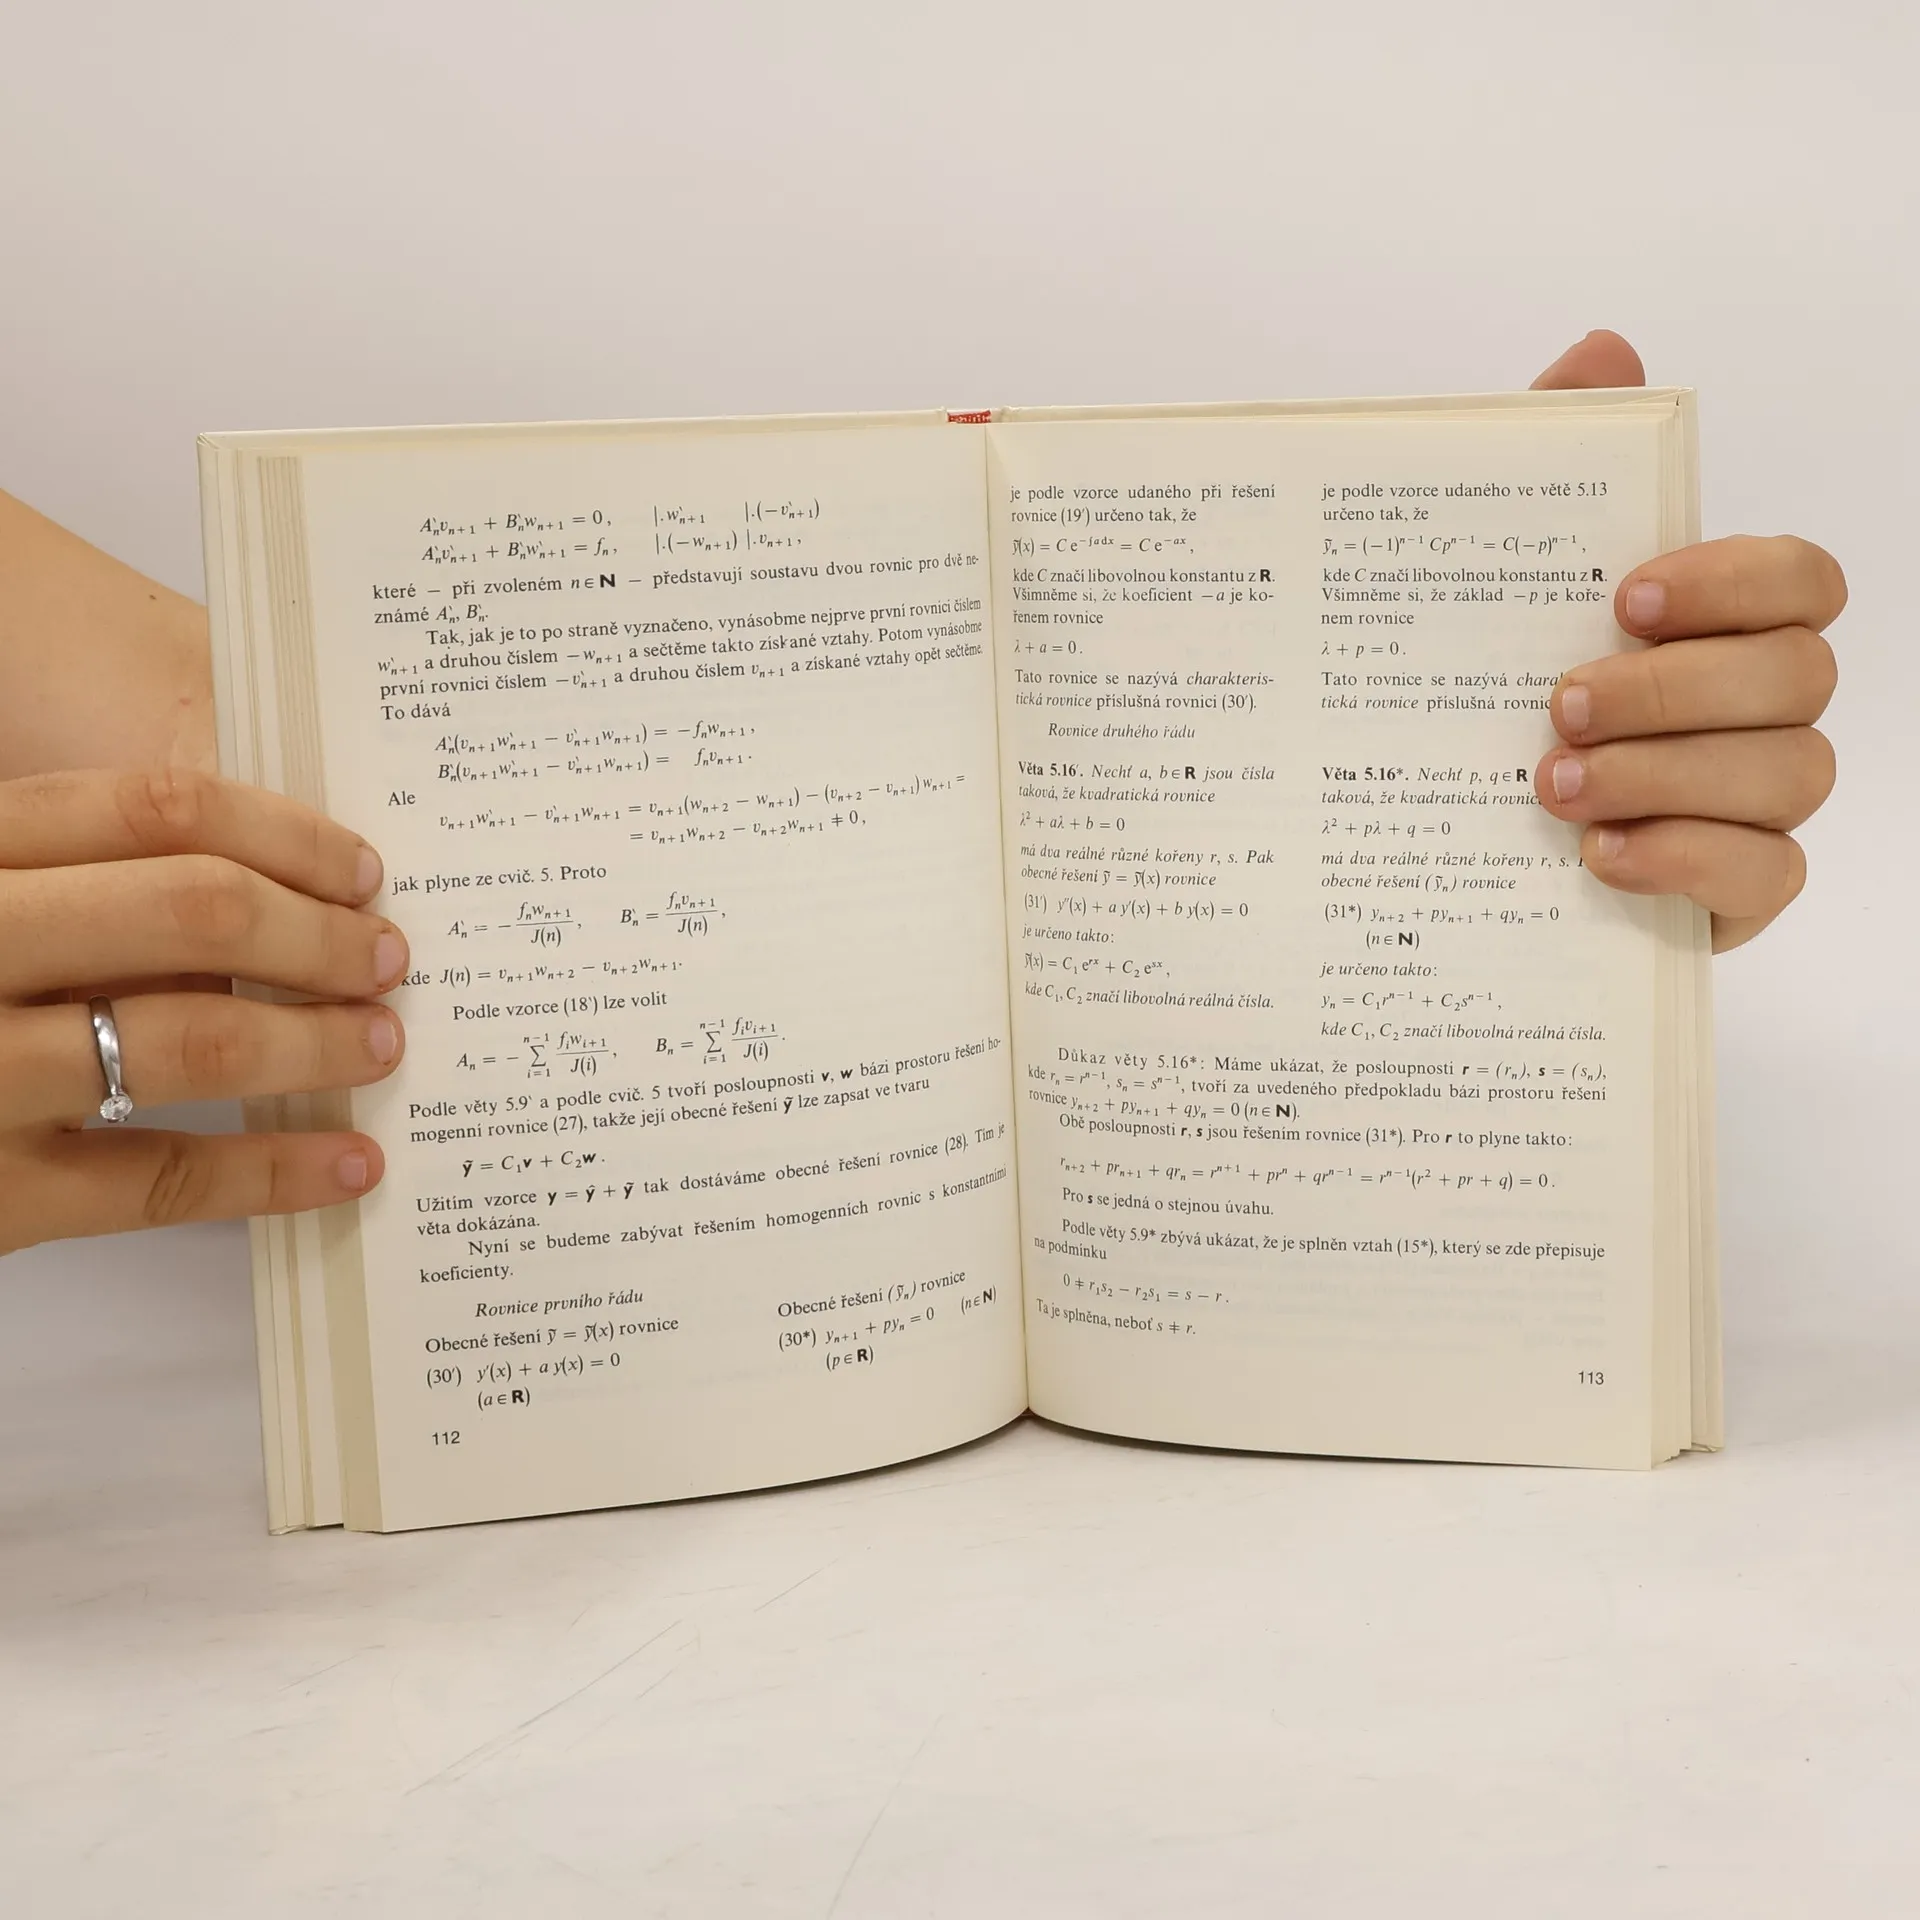 A`ₙvₙ₊₁ + B`ₙwₙ₊₁ = 0, |.w`ₙ₊₁ |.(−v`ₙ₊₁)
A`ₙv`ₙ₊₁ + B`ₙw`ₙ₊₁ = fₙ, |.(−wₙ₊₁) |.vₙ₊₁,
které − při zvoleném n ∈ N − představují soustavu dvou rovnic pro dvě ne-
známé A`ₙ, B`ₙ.
Tak, jak je to po straně vyznačeno, vynásobme nejprve první rovnici číslem
w`ₙ₊₁ a druhou číslem −wₙ₊₁ a sečtěme takto získané vztahy. Potom vynásobme
první rovnici číslem −v`ₙ₊₁ a druhou číslem vₙ₊₁ a získané vztahy opět sečtěme.
To dává
A`ₙ(vₙ₊₁w`ₙ₊₁ − v`ₙ₊₁wₙ₊₁) = −fₙwₙ₊₁,
B`ₙ(vₙ₊₁w`ₙ₊₁ − v`ₙ₊₁wₙ₊₁) = fₙvₙ₊₁.
Ale
vₙ₊₁w`ₙ₊₁ − v`ₙ₊₁wₙ₊₁ = vₙ₊₁(wₙ₊₂ − wₙ₊₁) − (vₙ₊₂ − vₙ₊₁)wₙ₊₁ =
= vₙ₊₁wₙ₊₂ − vₙ₊₂wₙ₊₁ ≠ 0,
jak plyne ze cvič. 5. Proto
A`ₙ = − fₙwₙ₊₁ / J(n), B`ₙ = fₙvₙ₊₁ / J(n),
kde J(n) = vₙ₊₁wₙ₊₂ − vₙ₊₂wₙ₊₁.
Podle vzorce (18`) lze volit
Aₙ = − ∑ᵢ₌₁ⁿ⁻¹ fᵢwᵢ₊₁ / J(i), Bₙ = ∑ᵢ₌₁ⁿ⁻¹ fᵢvᵢ₊₁ / J(i).
Podle věty 5.9` a podle cvič. 5 tvoří posloupnosti v, w bázi prostoru řešení ho-
mogenní rovnice (27), takže její obecné řešení ỹ lze zapsat ve tvaru
ỹ = C₁v + C₂w.
Užitím vzorce y = ŷ + ỹ tak dostáváme obecné řešení rovnice (28). Tím je
věta dokázána.
Nyní se budeme zabývat řešením homogenních rovnic s konstantními
koeficienty.
Rovnice prvního řádu
Obecné řešení ỹ = ỹ(x) rovnice
(30′) y′(x) + a y(x) = 0
(a ∈ R)
Obecné řešení (ỹₙ) rovnice
(30*) yₙ₊₁ + pyₙ = 0 (n ∈ N)
(p ∈ R)
112
je podle vzorce udaného při řešení
rovnice (19′) určeno tak, že
ỹ(x) = C e^(−∫a dx) = C e^(−ax),
kde C značí libovolnou konstantu z R.
Všimněme si, že koeficient −a je ko-
řenem rovnice
λ + a = 0.
Tato rovnice se nazývá charakteris-
tická rovnice příslušná rovnici (30′).
Rovnice druhého řádu
Věta 5.16′. Nechť a, b ∈ R jsou čísla
taková, že kvadratická rovnice
λ² + aλ + b = 0
má dva reálné různé kořeny r, s. Pak
obecné řešení ỹ = ỹ(x) rovnice
(31′) y″(x) + a y′(x) + b y(x) = 0
je určeno takto:
ỹ(x) = C₁ e^(rx) + C₂ e^(sx),
kde C₁, C₂ značí libovolná reálná čísla.
je podle vzorce udaného ve větě 5.13
určeno tak, že
ỹₙ = (−1)ⁿ⁻¹ Cpⁿ⁻¹ = C(−p)ⁿ⁻¹,
kde C značí libovolnou konstantu z R.
Všimněme si, že základ −p je koře-
nem rovnice
λ + p = 0.
Tato rovnice se nazývá
tická rovnice příslušná
Věta 5.16*. Nechť p, q ∈ R
taková, že kvadratická
λ² + pλ + q = 0
má dva reálné různé kořeny r, s.
obecné řešení (ỹₙ) rovnice
(31*) yₙ₊₂ + pyₙ₊₁ + qyₙ = 0
(n ∈ N)
je určeno takto:
yₙ = C₁rⁿ⁻¹ + C₂sⁿ⁻¹,
kde C₁, C₂ značí libovolná reálná čísla.
Důkaz věty 5.16*: Máme ukázat, že posloupnosti r = (rₙ), s = (sₙ),
kde rₙ = rⁿ⁻¹, sₙ = sⁿ⁻¹, tvoří za uvedeného předpokladu bázi prostoru řešení
rovnice yₙ₊₂ + pyₙ₊₁ + qyₙ = 0 (n ∈ N).
Obě posloupnosti r, s jsou řešením rovnice (31*). Pro r to plyne takto:
rₙ₊₂ + prₙ₊₁ + qrₙ = rⁿ⁺¹ + prⁿ + qrⁿ⁻¹ = rⁿ⁻¹(r² + pr + q) = 0.
Pro s se jedná o stejnou úvahu.
Podle věty 5.9* zbývá ukázat, že je splněn vztah (15*), který se zde přepisuje
na podmínku
0 ≠ r₁s₂ − r₂s₁ = s − r.
Ta je splněna, neboť s ≠ r.
113